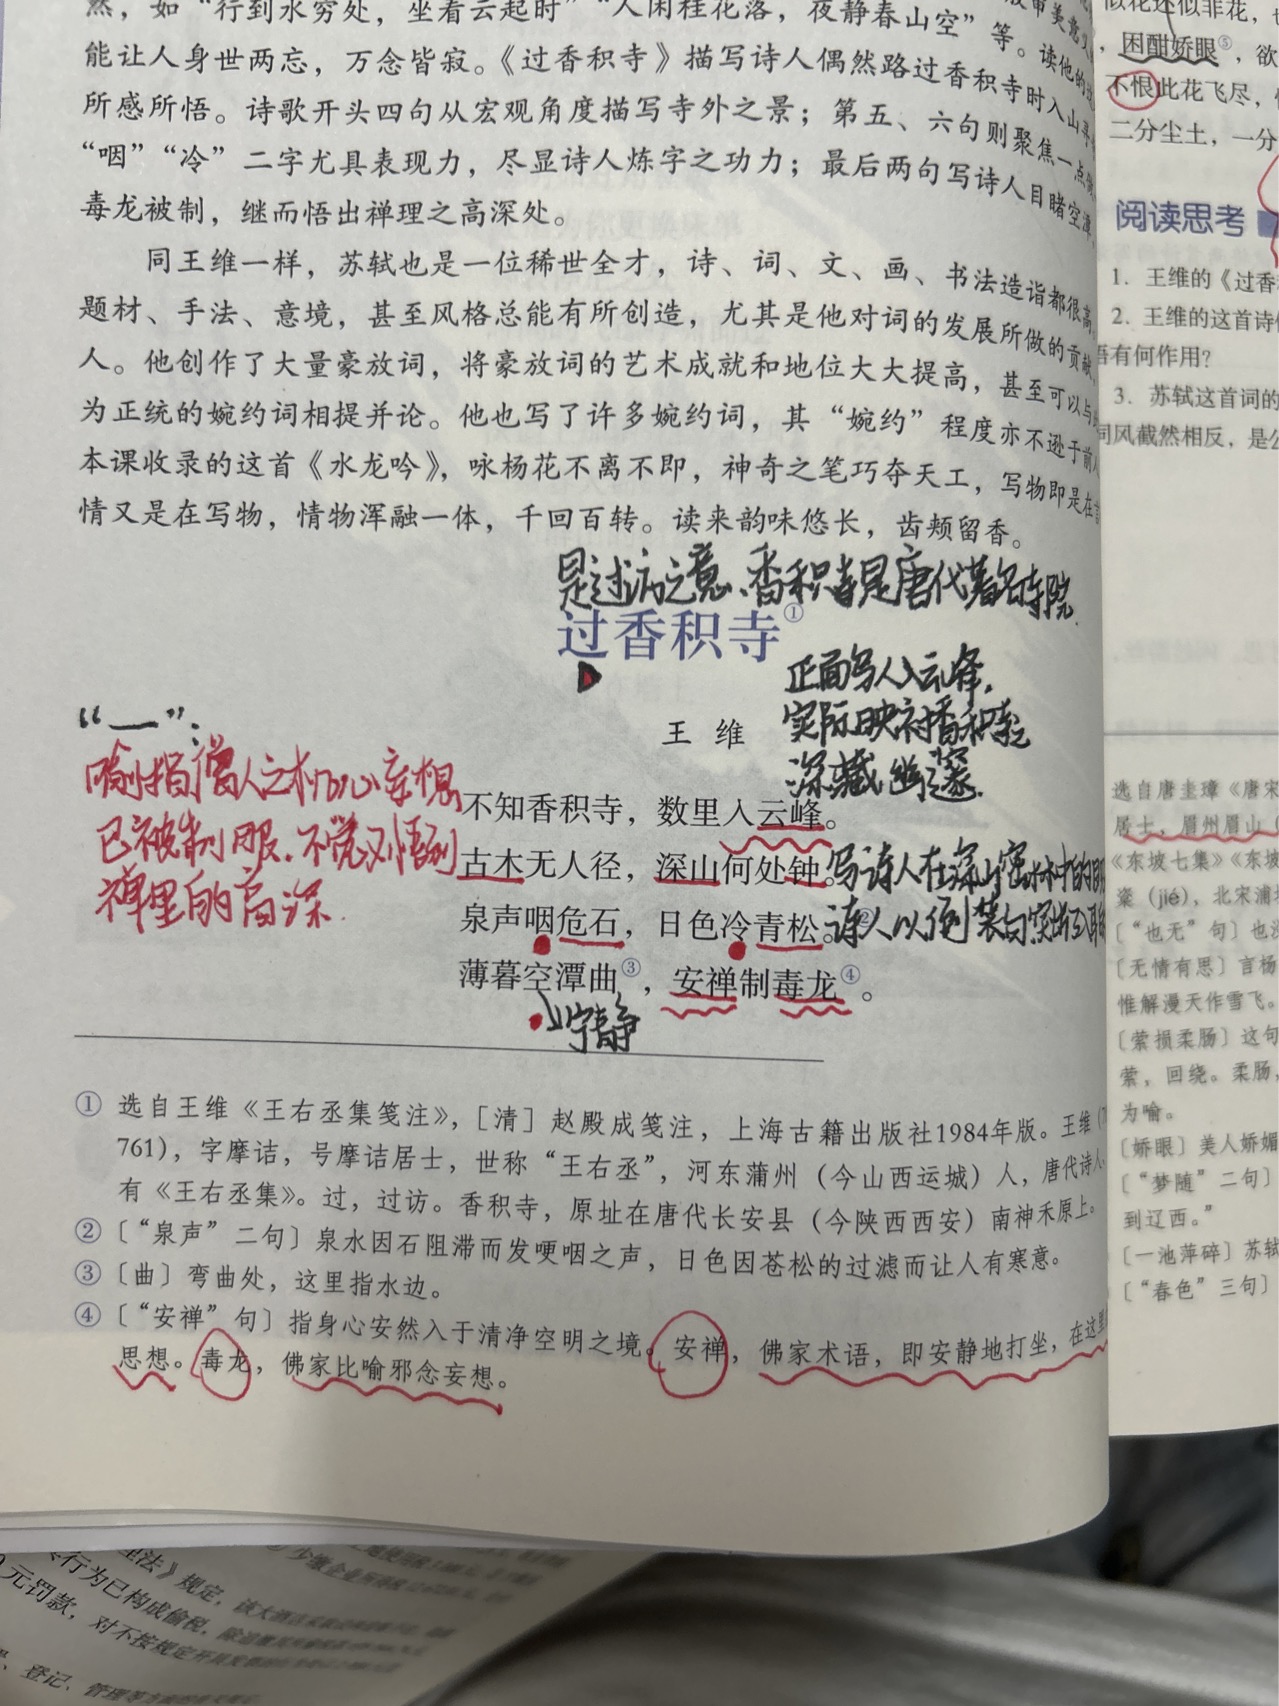 然，如“行到水穷处，坐看云起时”“人闲桂花落，夜静春山空”等。读他的
能让人身世两忘，万念皆寂。《过香积寺》描写诗人偶然路过香积寺时入山寻
所感所悟。诗歌开头四句从宏观角度描写寺外之景；第五、六句则聚焦一点
“咽”“冷”二字尤具表现力，尽显诗人炼字之功力；最后两句写诗人目睹空潭，
毒龙被制，继而悟出禅理之高深处。
同王维一样，苏轼也是一位稀世全才，诗、词、文、画、书法造诣都很高，
题材、手法、意境，甚至风格总能有所创造，尤其是他对词的发展所做的贡献，
人。他创作了大量豪放词，将豪放词的艺术成就和地位大大提高，甚至可以与
为正统的婉约词相提并论。他也写了许多婉约词，其“婉约”程度亦不逊于前人
本课收录的这首《水龙吟》，咏杨花不离不即，神奇之笔巧夺天工，写物即是在言
情又是在写物，情物浑融一体，千回百转。读来韵味悠长，齿颊留香。
是过访之意、香积寺是唐代著名寺院.
过香积寺①
正面写入云峰，
实际映衬香积寺
深藏幽邃.
王 维
“—”：
喻指僧人之机心妄想
已被制服.不觉又悟到
禅里的高深.
不知香积寺，数里入云峰。
古木无人径，深山何处钟。
写诗人在深山密林中的
泉声咽危石，日色冷青松。②
诗人以倒装句突出
薄暮空潭曲③，安禅制毒龙④。
宁静
① 选自王维《王右丞集笺注》，［清］赵殿成笺注，上海古籍出版社1984年版。王维（7
761），字摩诘，号摩诘居士，世称“王右丞”，河东蒲州（今山西运城）人，唐代诗人
有《王右丞集》。过，过访。香积寺，原址在唐代长安县（今陕西西安）南神禾原上。
② 〔“泉声”二句〕泉水因石阻滞而发哽咽之声，日色因苍松的过滤而让人有寒意。
③ 〔曲〕弯曲处，这里指水边。
④ 〔“安禅”句〕指身心安然入于清净空明之境。安禅，佛家术语，即安静地打坐，在这里
思想。毒龙，佛家比喻邪念妄想。
似花还似非花，也
，困酣娇眼⑤，欲
不恨此花飞尽，
二分尘土，一分
阅读思考
1. 王维的《过香
2. 王维的这首诗
语有何作用？
3. 苏轼这首词的
词风截然相反，是
选自唐圭璋《唐宋
居士，眉州眉山（
《东坡七集》《东坡
楶（jié），北宋浦
〔“也无”句〕也
〔无情有思〕言杨
惟解漫天作雪飞。
〔萦损柔肠〕这句
萦，回绕。柔肠，
为喻。
〔娇眼〕美人娇媚
〔“梦随”二句〕
到辽西。”
〔一池萍碎〕苏轼
〔“春色”三句〕
理法》规定，该大
行为已构成偷税，
元罚款，对不按规定
登记、管理等